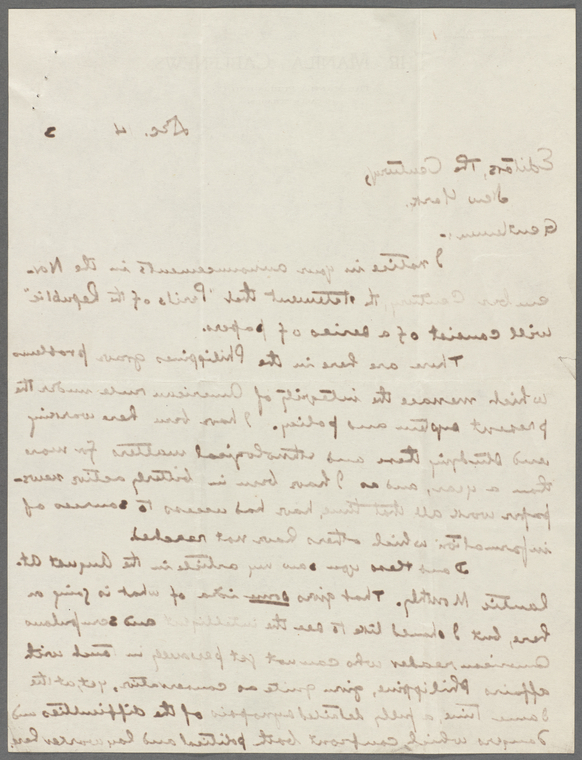 THE MANILA CABLENEWS
Dec. 4 3
Editors, The Century,
New York.
Gentlemen:-
I notice in your announcements in the Nov-
ember Century, the statement that "Perils of the Republic"
will consist of a series of papers.
There are here in the Philippines grave problems
which menace the integrity of American rule under the
present system and policy. I have been here working
and studying these and ethnological matters for more
than a year, and, as I have been in bitterly active news-
paper work all that time, have had access to sources of
information which others have not reached.
I and you saw my article in the August At-
lantic Monthly. That gives some idea of what is going on
here, but I should like to see the intelligent and scrupulous
American reader who cannot get personally in touch with
affairs Philippine, given quite as conservative, yet, at the
same time a fully detailed synopsis of the difficulties and
dangers which confront both political and lay worker here